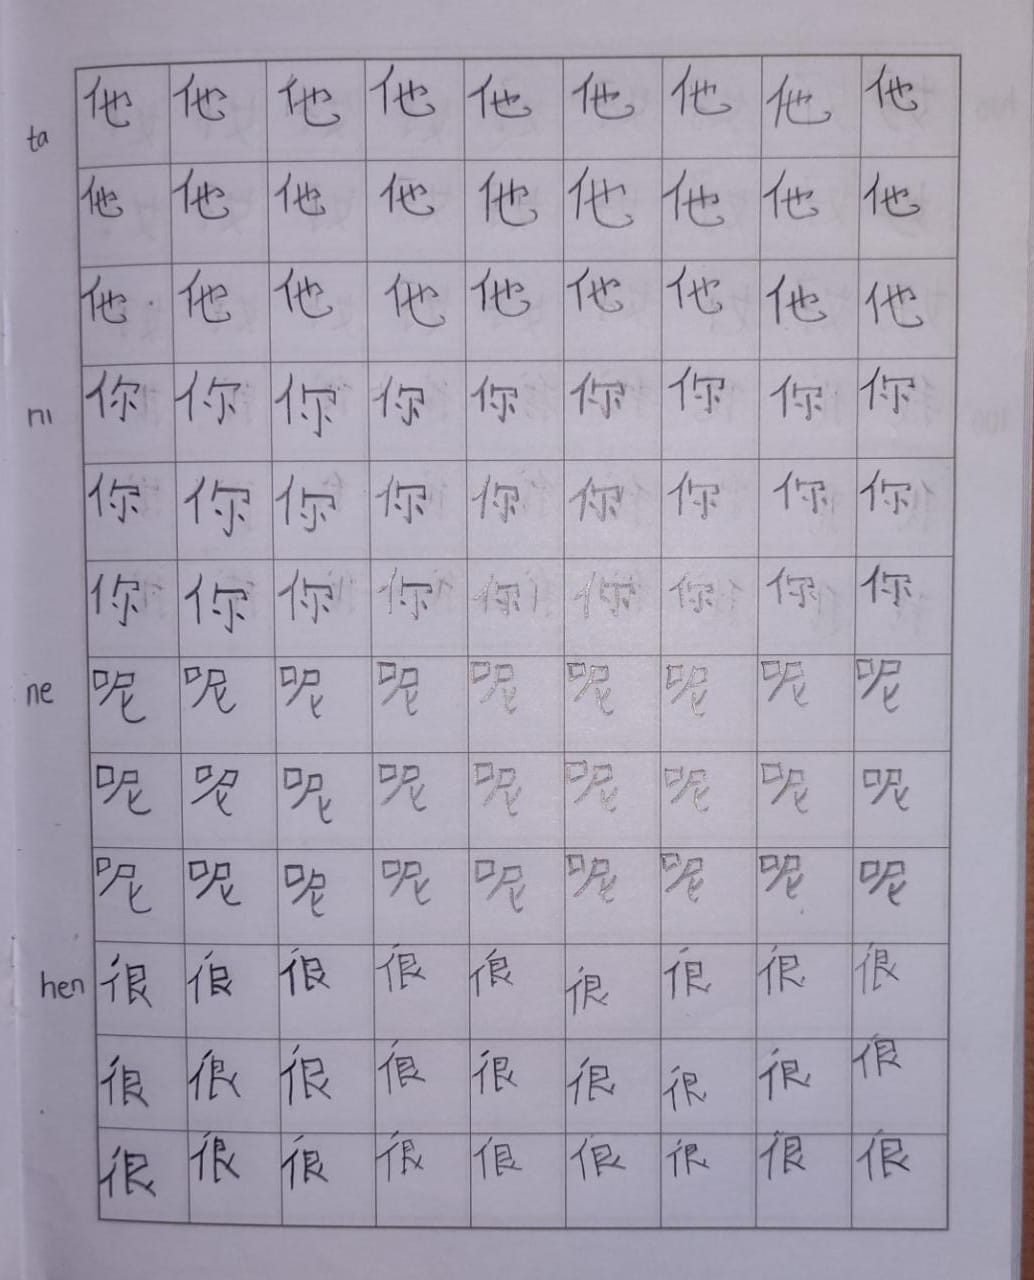 ta 他 他 他 他 他 他 他 他 他
他 他 他 他 他 他 他 他 他
他 他 他 他 他 他 他 他 他
ni 你 你 你 你 你 你 你 你 你
你 你 你 你 你 你 你 你 你
你 你 你 你 你 你 你 你 你
ne 呢 呢 呢 呢 呢 呢 呢 呢 呢
呢 呢 呢 呢 呢 呢 呢 呢 呢
呢 呢 呢 呢 呢 呢 呢 呢 呢
hen 很 很 很 很 很 很 很 很 很
很 很 很 很 很 很 很 很 很
很 很 很 很 很 很 很 很 很